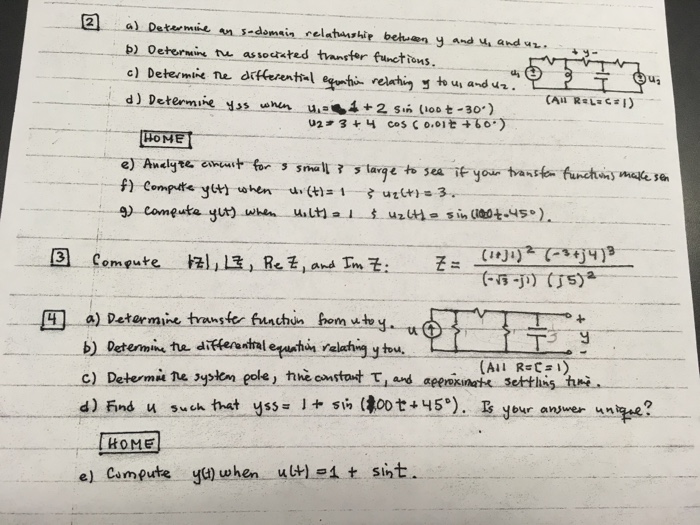 2 a) Determine an s-domain relationship between y and u1 and u2.
b) Determine the associated transfer functions.
+ y -
c) Determine the differential equation relating y to u1 and u2.
u1
u2
d) Determine yss when u1 = 1 + 2 sin (100t - 30°)
(All R=L=C=1)
u2 = 3 + 4 cos (0.01t + 60°)
HOME
e) Analyze circuit for s small & s large to see if your transfer functions make sen
f) Compute y(t) when u1(t) = 1 & u2(t) = 3.
g) Compute y(t) when u1(t) = 1 & u2(t) = sin(100t-45°).
3 Compute |Z|, ∠Z, Re Z, and Im Z: Z = (1+j1)² (-3+j4)³ / (-√3 -j1) (j5)²
4 a) Determine transfer function from u to y.
u
+
y
-
b) Determine the differential equation relating y to u.
(All R=C=1)
c) Determine the system pole, time constant τ, and approximate settling time.
d) Find u such that yss = 1 + sin (100t + 45°). Is your answer unique?
HOME
e) Compute y(t) when u(t) = 1 + sint.